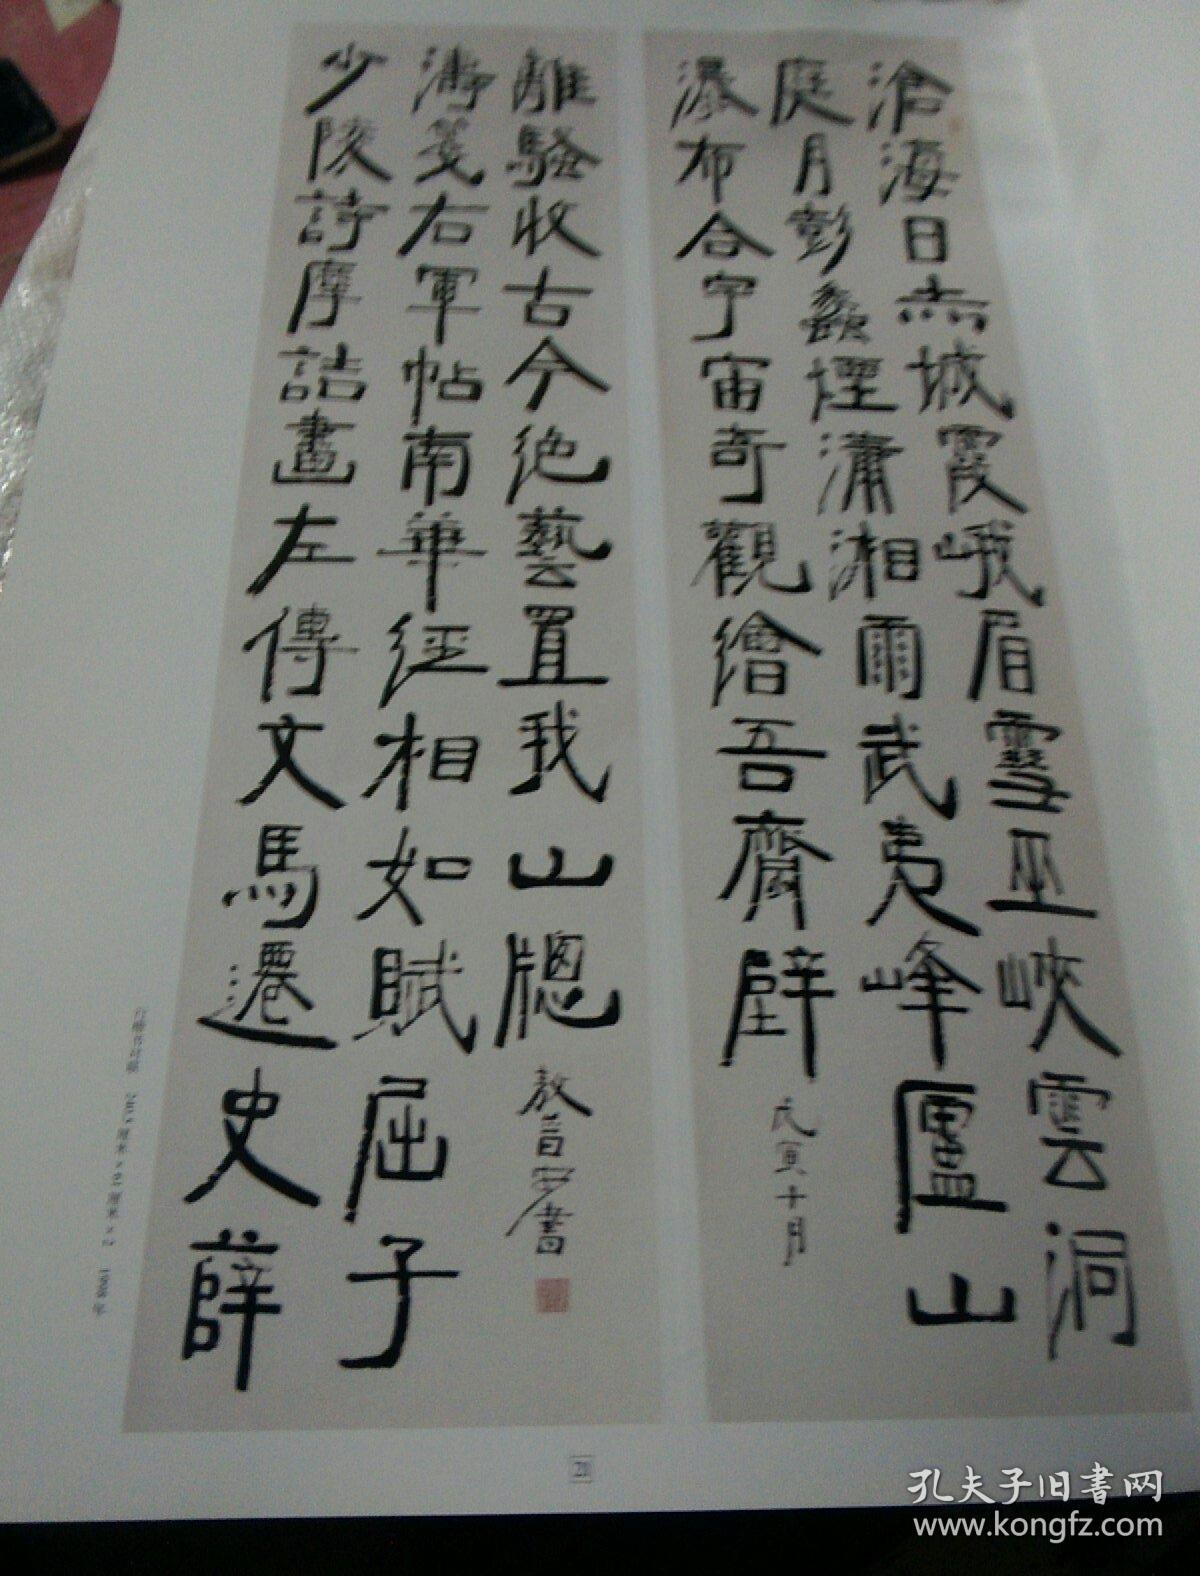 滄海日赤城霞峨眉雪巫峽雲洞
庭月彭蠡煙瀟湘雨武夷峰廬山
瀑布合宇宙奇觀繪吾齋壁
戊寅十月
少陵詩摩詰畫左傳文馬遷史薛
濤箋右軍帖南華經相如賦屈子
離騷收古今絕藝置我山牕
敖普安書
1998年
21
孔夫子旧书网
www.kongfz.com